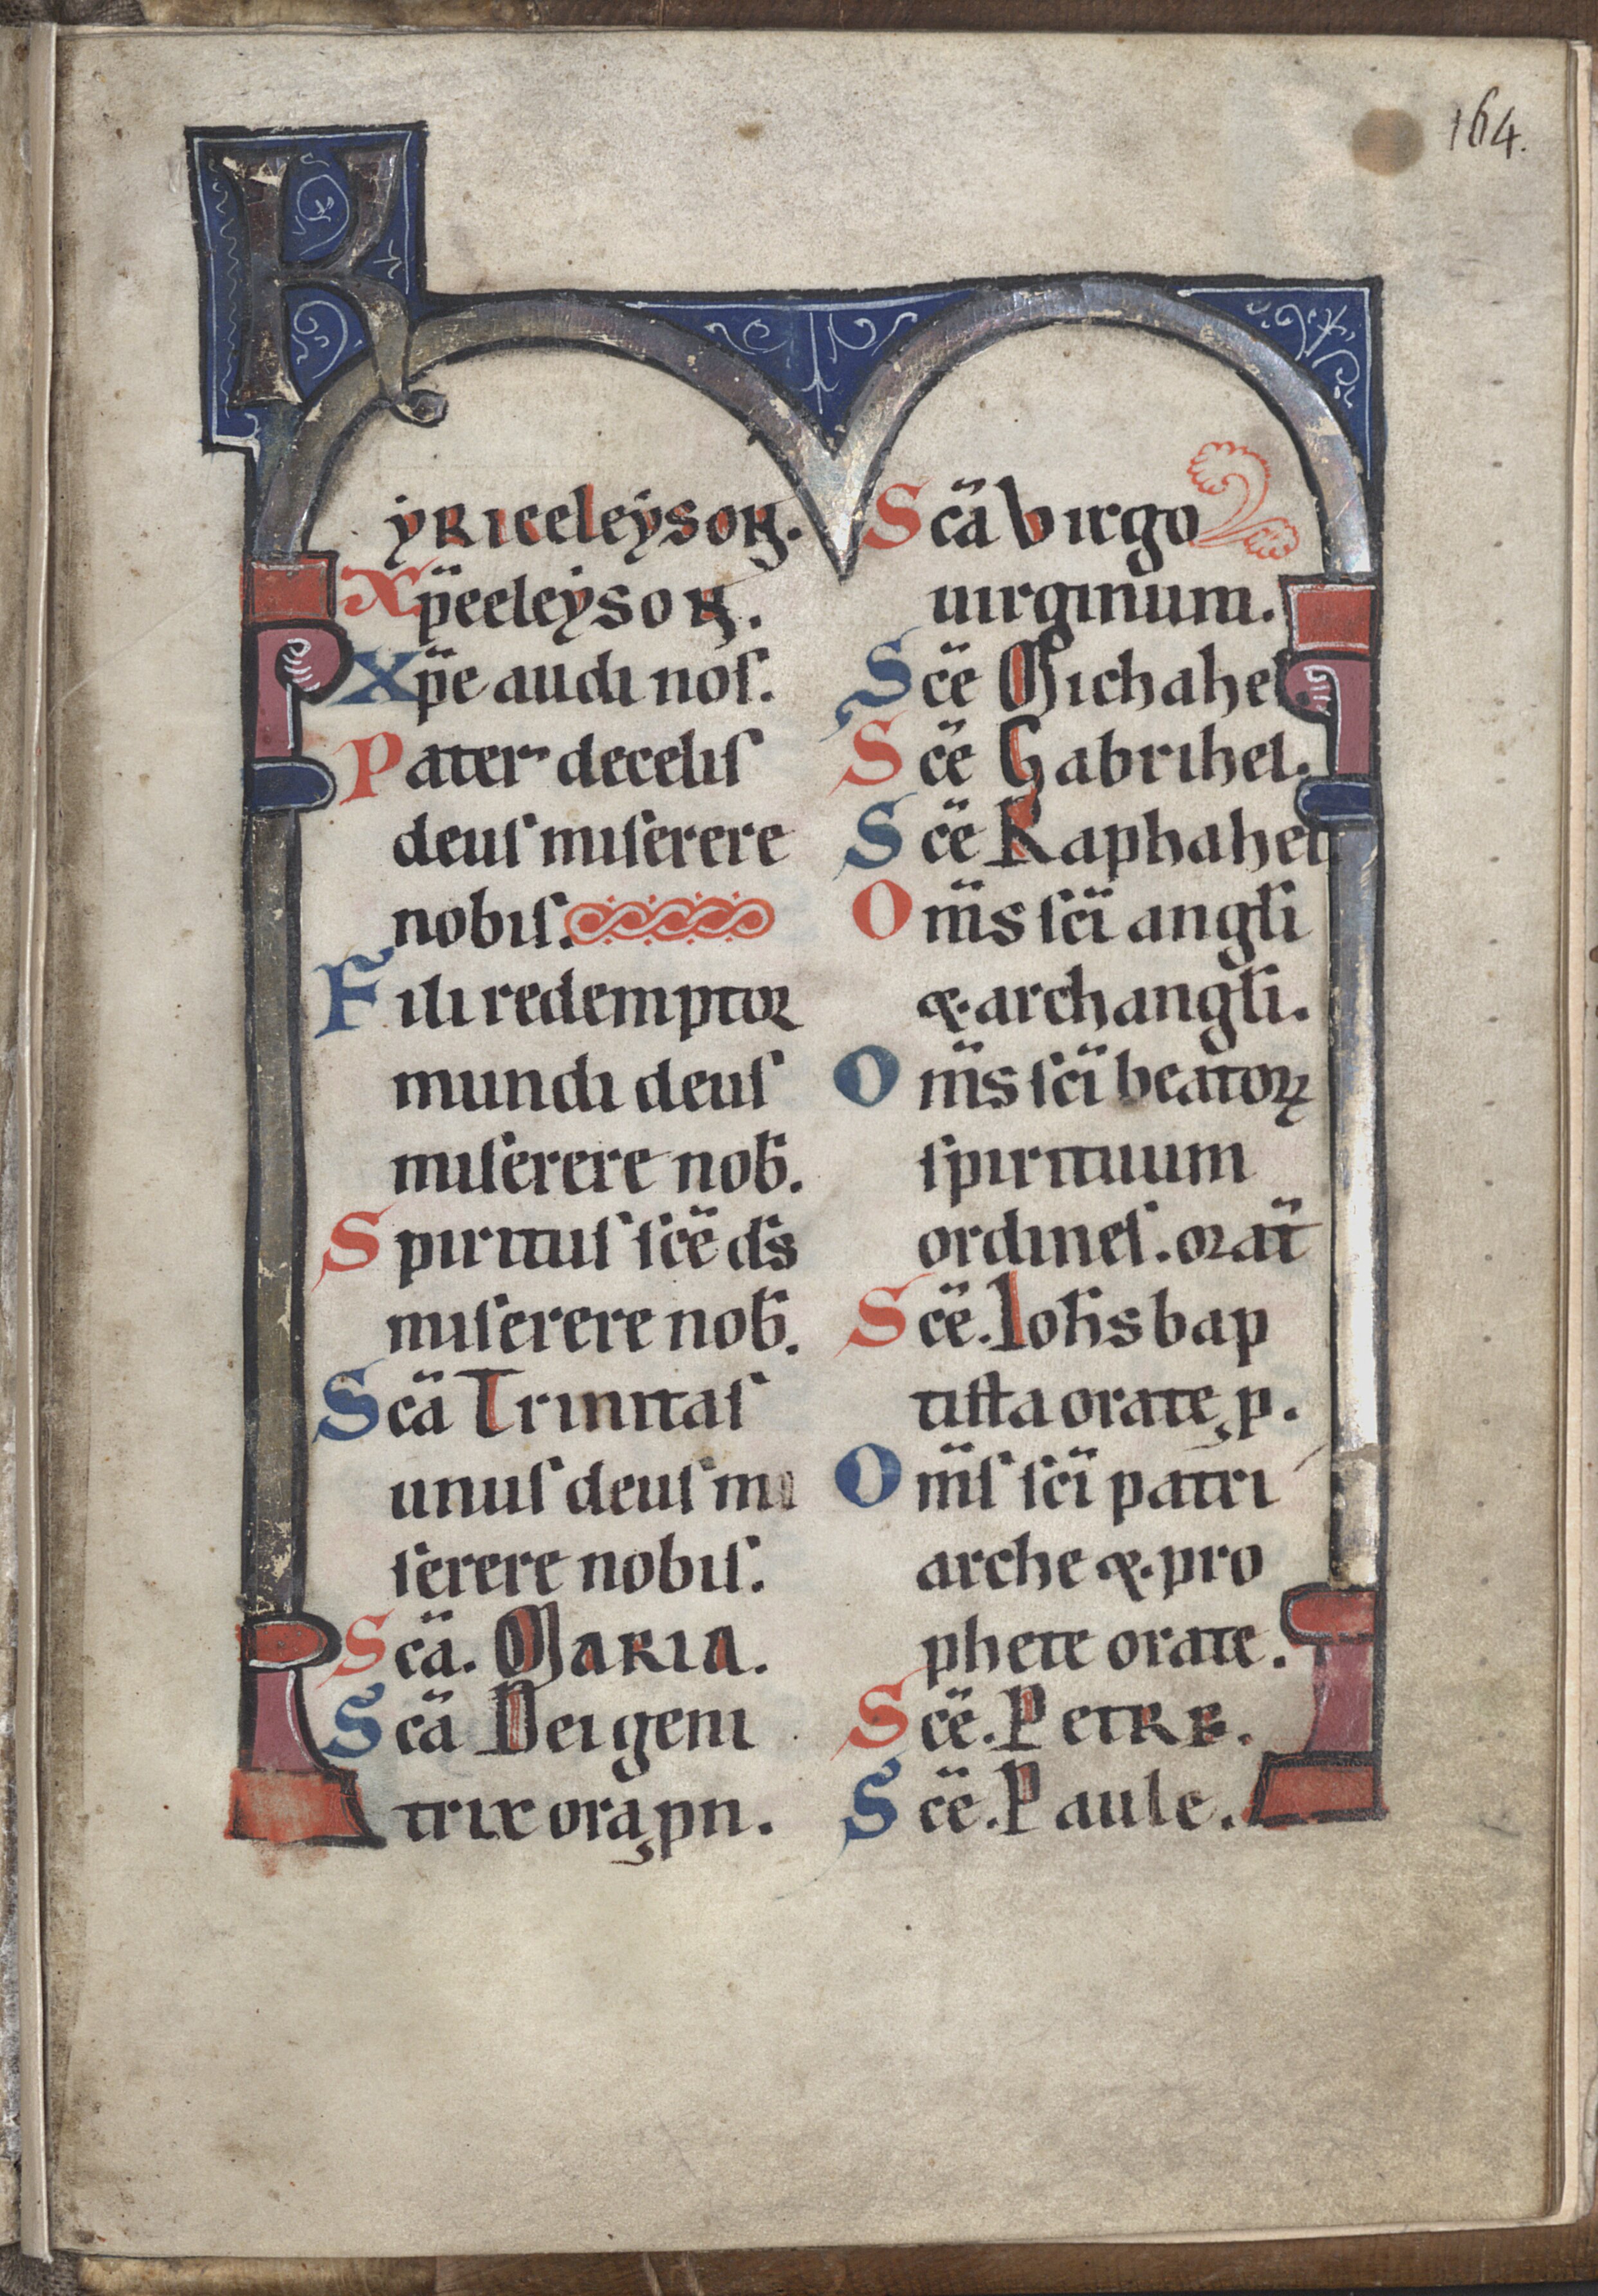 164.
Kyrieeleyson.
Xp̈eeleyson.
Xp̈e audi nos.
Pater de celis
deus miserere
nobis.
Fili redemptor
mundi deus
miserere nob̄.
Spiritus sc̈e d̄s
miserere nob̄.
Sc̈a Trinitas
unus deus mi
serere nobis.
Sc̈a. MARIA.
Sc̈a Dei geni
trix ora ꝓ n.
Sc̈a virgo
uirginum.
Sc̈e Michahel
Sc̈e Gabrihel.
Sc̈e Raphahel
Om̈s sc̈i angl̄i
&archangl̄i.
Om̈s sc̈i beatoꝝ
spirituum
ordines. orat̄
Sc̈e. Ioh̄s bap
tista orate ꝓ.
Om̈s sc̈i patri
arche & pro
phete orate.
Sc̈e. PETRE.
Sc̈e. Paule.